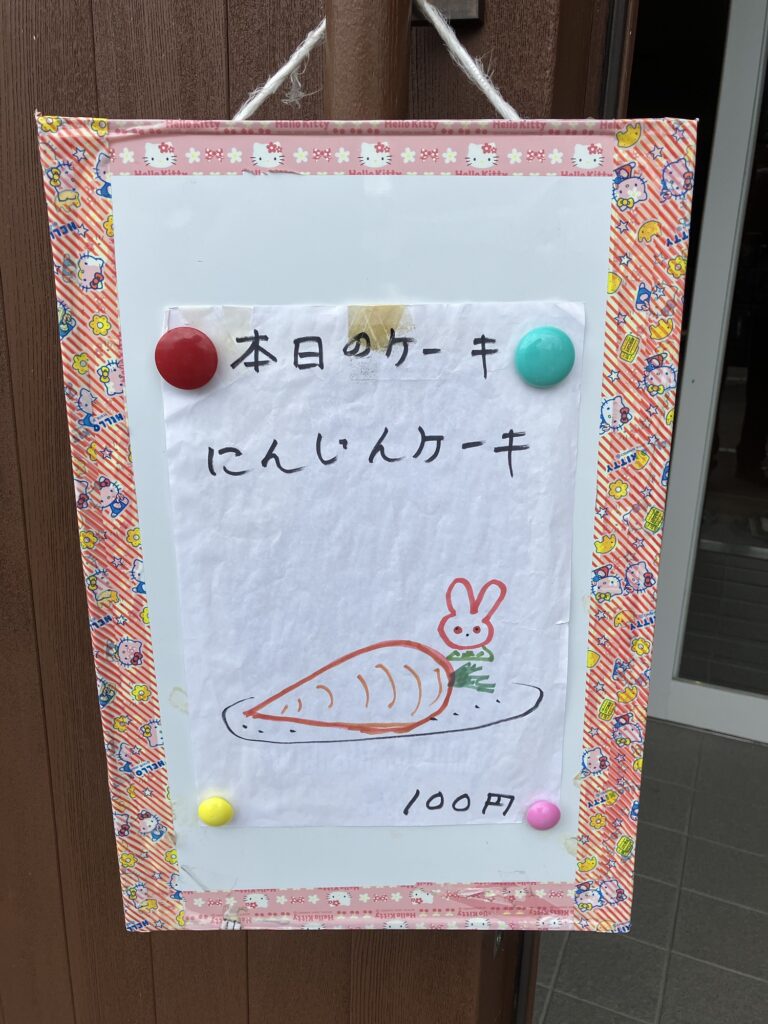 Hello Kitty
Hello Kitty
Hello Kitty
本日のケーキ
にんじんケーキ
100円